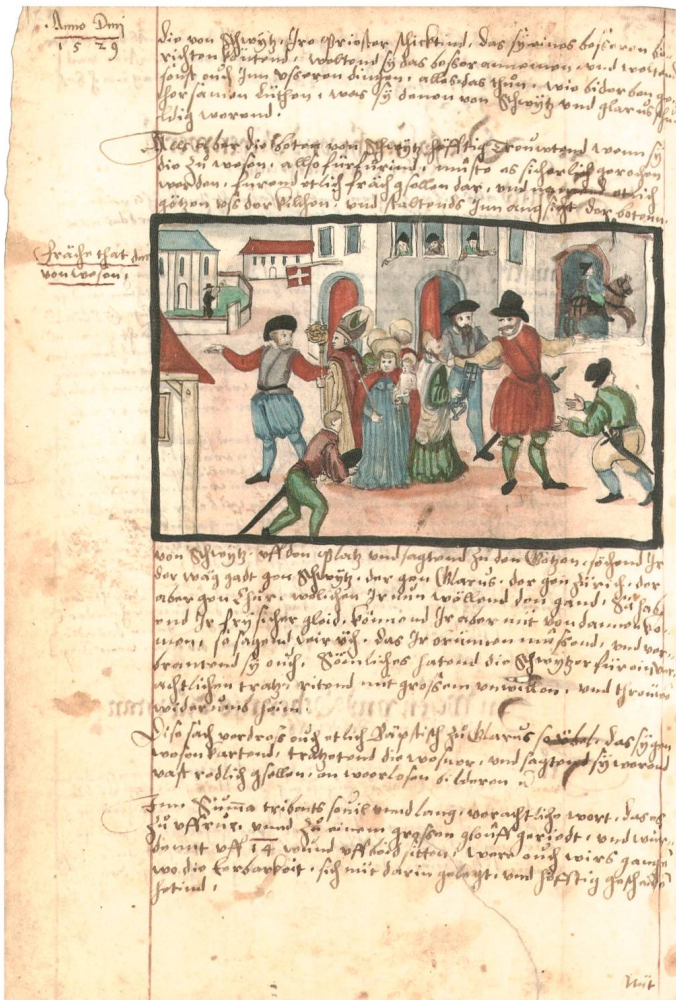 Anno Dmj
1529
die von Schwytz, Ire Priester schicktind, das sy eines besseren be-
richten köntend, weltend sy das besser annemen, und welt
sonst ouch Inn usseren dingen, alles das thun, wie biderben ge-
horsamen Lüthen, was sy denen von Schwytz und glarus schul-
dig werend.
Alls aber die botten von Schwytz häfftig tröuwtend wenn sy
die zu wesen, allso fürfürind, müste es sicherlich gerochen
werden, fürend etlich fräch gsellen dar, und etlich
götzen uss der kilchen, und staltends Inn angsicht der botten
fräche that deren
von Wesen,
von Schwytz, uff den platz und sagtend zu den Götzen, sehend Ir
der wäg gadt gen Schwytz, der gen Glarus, der gen Zürich, der
aber gen Chur, welichen Ir nun wöllend den gand, Zu hab-
end Ir fry sicher gleid, könnend Ir aber nit von dannen ko-
men, so sagend wir üch, das Ir brünnen müssend, und ver-
brantend sy ouch, Sömliches hatend die Schwytzer für ein ver-
achtlichen tratz, ritend mit grossem unwillen, und
widerumb heim.
Dise sach verdros ouch etlich Bäpstisch zu Glarus so übel, das sy gen
wesen kartend, tratzetend die weser, und sagtend sy werend
vast redlich gsellen, an weerlosen bilderen
Inn Summa tribents souil unnd lang, verachtliche wort, das es
zu uffrur, unnd zu einem grossen glöuff geriedt, und wur-
dennt uff 14 wund uff bed sitten, were ouch wirs gange
wo die Eerbarkeit, sich nüt darin gelegt, und häfftig gescheiden
hetind,
Nüt